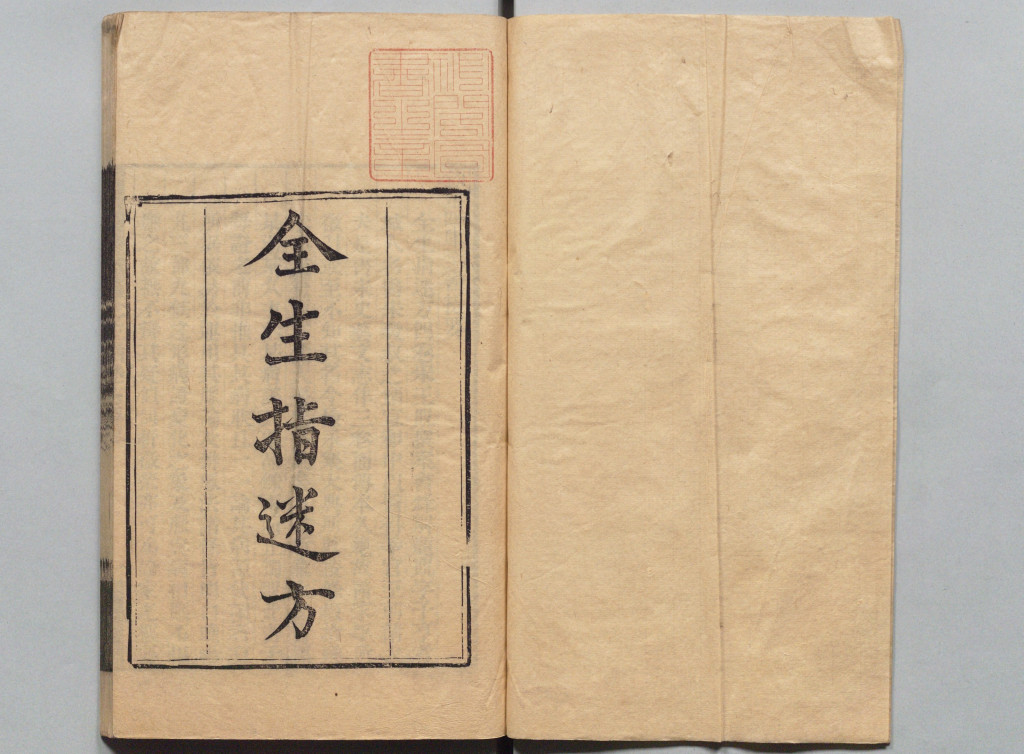 全生指迷方